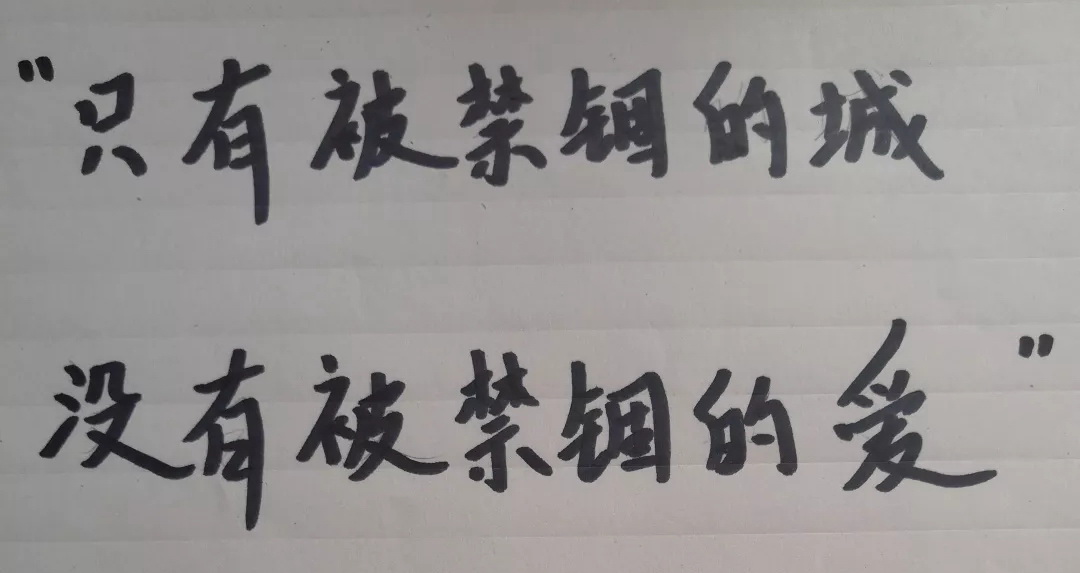 "只有被禁锢的城
没有被禁锢的爱"